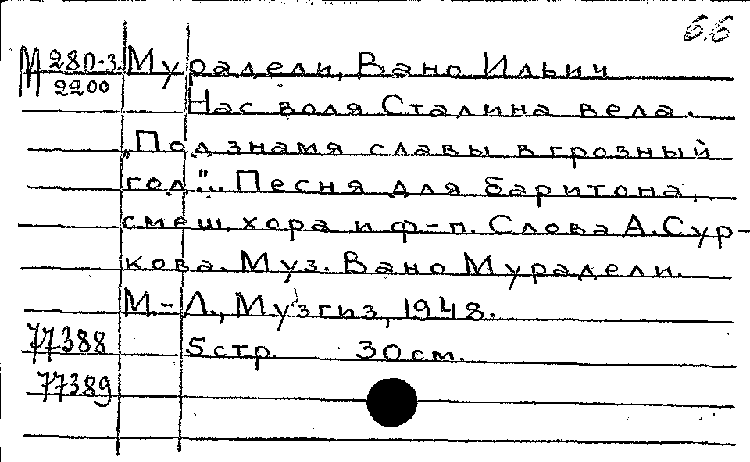 6.6
М 280-3. Мурадели, Вано Ильич
2200
Нас воля Сталина вела.
„Под знамя славы в грозный
год"... Песня для баритона,
смеш. хора и ф-п. Слова А.Сур-
кова. Муз. Вано Мурадели.
М.-Л., Музгиз, 1948.
77388 5стр. 30см.
77389